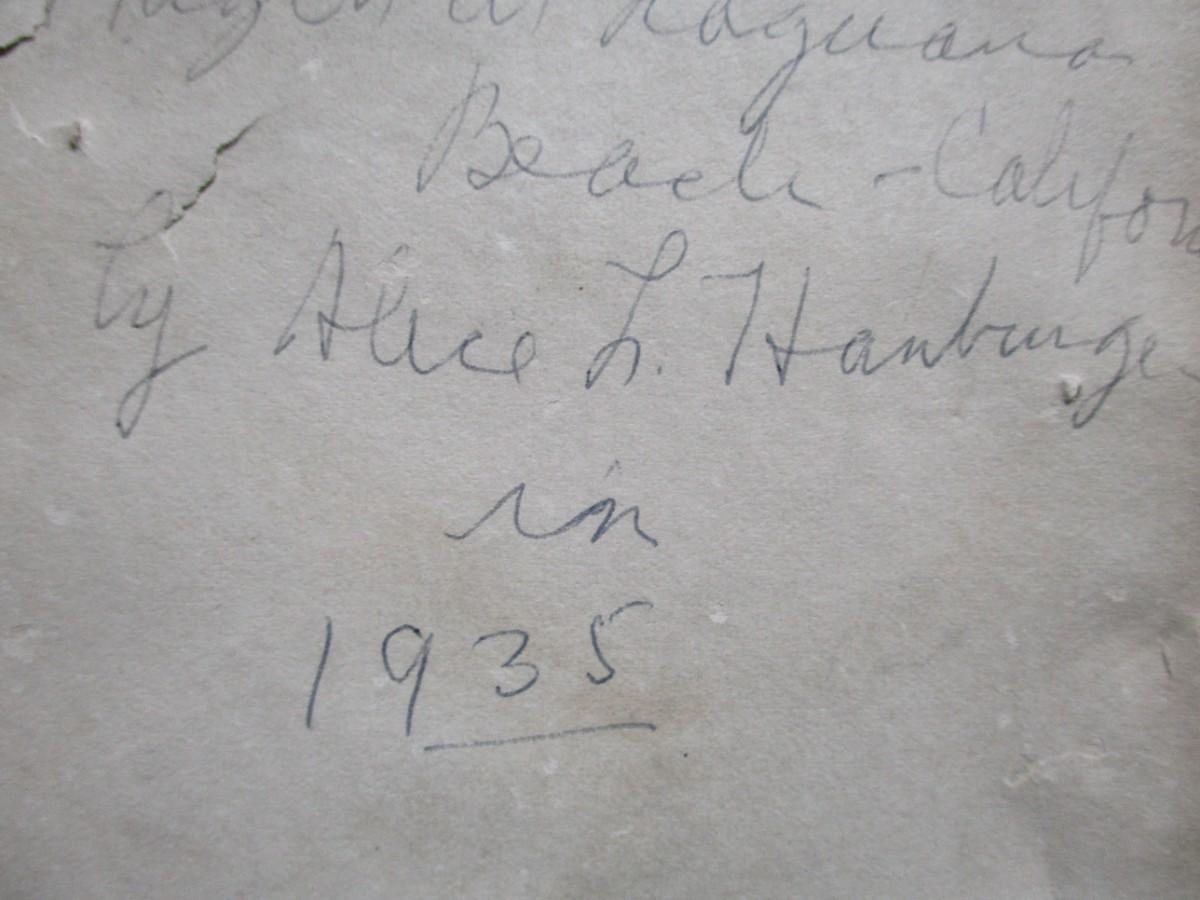 at Laguana
Beach - Califor
by Alice L. Hanburge
in
1935